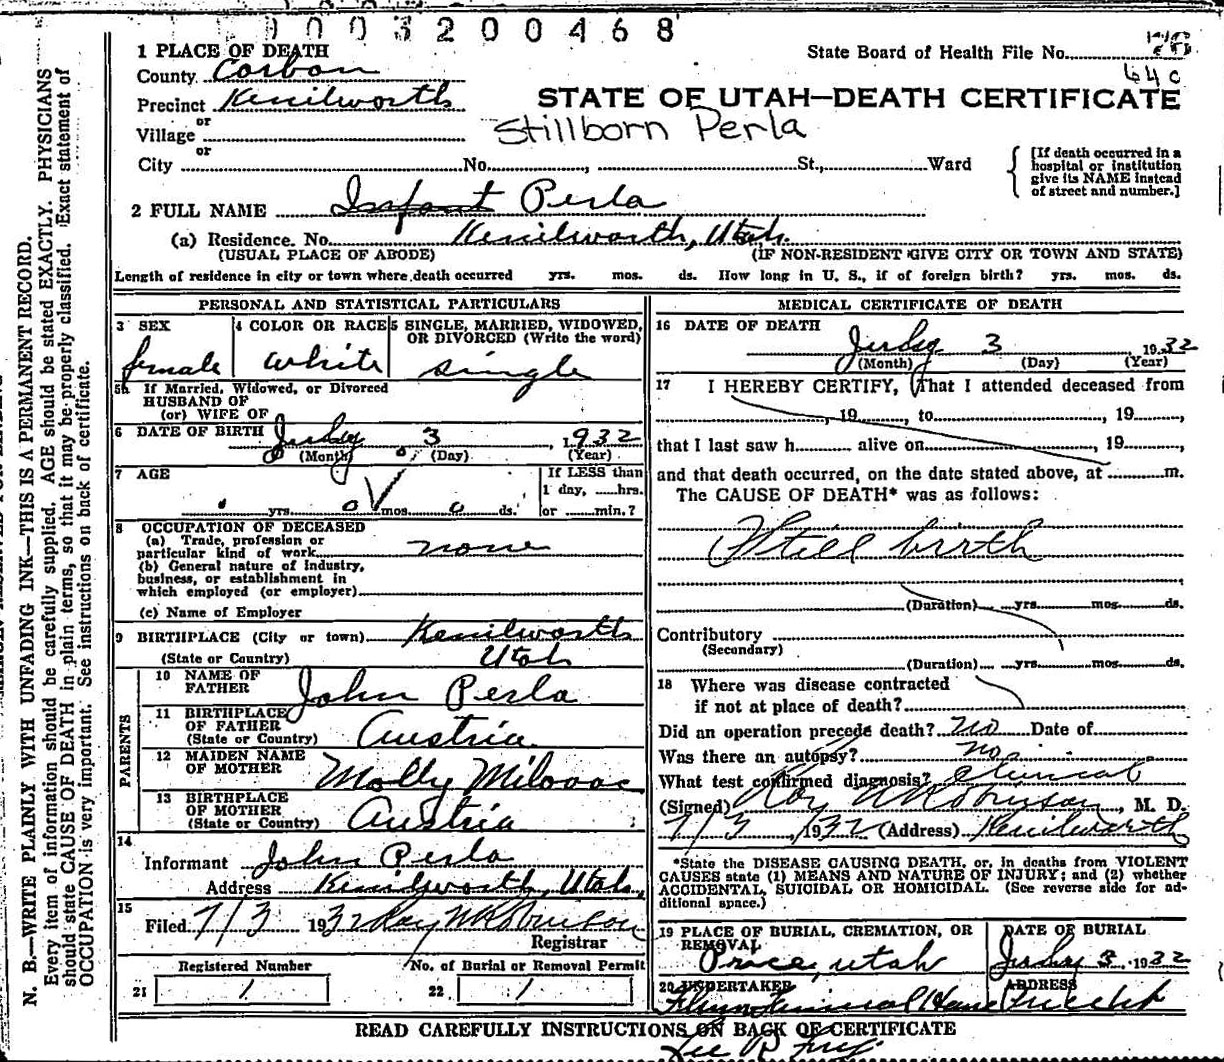 0003200468
1 PLACE OF DEATH
State Board of Health File No.
County Carbon
64c
Precinct Kenilworth
STATE OF UTAH—DEATH CERTIFICATE
or
Stillborn Perla
Village
or
City No. , St., Ward
[If death occurred in a hospital or institution give its NAME instead of street and number.]
2 FULL NAME Infant Perla
(a) Residence. No. Kenilworth, Utah.
(USUAL PLACE OF ABODE) (IF NON-RESIDENT GIVE CITY OR TOWN AND STATE)
Length of residence in city or town where death occurred yrs. mos. ds. How long in U. S., if of foreign birth? yrs. mos. ds.
PERSONAL AND STATISTICAL PARTICULARS
3 SEX
female
4 COLOR OR RACE
white
5 SINGLE, MARRIED, WIDOWED,
OR DIVORCED (Write the word)
single
5a If Married, Widowed, or Divorced
HUSBAND OF
(or) WIFE OF
6 DATE OF BIRTH July 3, 1932
(Month) (Day) (Year)
7 AGE
yrs. 0 mos. 0 ds.
If LESS than
1 day, hrs.
or min.?
8 OCCUPATION OF DECEASED
(a) Trade, profession or
particular kind of work none
(b) General nature of industry,
business, or establishment in
which employed (or employer)
(c) Name of Employer
9 BIRTHPLACE (City or town) Kenilworth
(State or Country) Utah
PARENTS
10 NAME OF
FATHER John Perla
11 BIRTHPLACE
OF FATHER
(State or Country) Austria
12 MAIDEN NAME
OF MOTHER Molly Milovac
13 BIRTHPLACE
OF MOTHER
(State or Country) Austria
14
Informant John Perla
Address Kenilworth, Utah,
15
Filed 7/3 1932 Roy W Robinson
Registrar
Registered Number
21 1
No. of Burial or Removal Permit
22 1
MEDICAL CERTIFICATE OF DEATH
16 DATE OF DEATH
July 3 1932
(Month) (Day) (Year)
17 I HEREBY CERTIFY, That I attended deceased from
, 19 , to , 19
that I last saw h alive on , 19
and that death occurred, on the date stated above, at m.
The CAUSE OF DEATH* was as follows:
Still birth
(Duration) yrs. mos. ds.
Contributory
(Secondary)
(Duration) yrs. mos. ds.
18 Where was disease contracted
if not at place of death?
Did an operation precede death? no Date of
Was there an autopsy? no
What test confirmed diagnosis? Clinical
(Signed) Roy W Robinson, M. D.
7/3, 1932 (Address) Kenilworth
*State the DISEASE CAUSING DEATH, or, in deaths from VIOLENT
CAUSES state (1) MEANS AND NATURE OF INJURY; and (2) whether
ACCIDENTAL, SUICIDAL OR HOMICIDAL. (See reverse side for ad-
ditional space.)
19 PLACE OF BURIAL, CREMATION, OR
REMOVAL
Price, Utah
DATE OF BURIAL
July 3, 1932
20 UNDERTAKER
Flynn Funeral Home
ADDRESS
READ CAREFULLY INSTRUCTIONS ON BACK OF CERTIFICATE
N. B.—WRITE PLAINLY WITH UNFADING INK—THIS IS A PERMANENT RECORD.
Every item of information should be carefully supplied. AGE should be stated EXACTLY. PHYSICIANS
should state CAUSE OF DEATH in plain terms, so that it may be properly classified. Exact statement of
OCCUPATION is very important. See instructions on back of certificate.